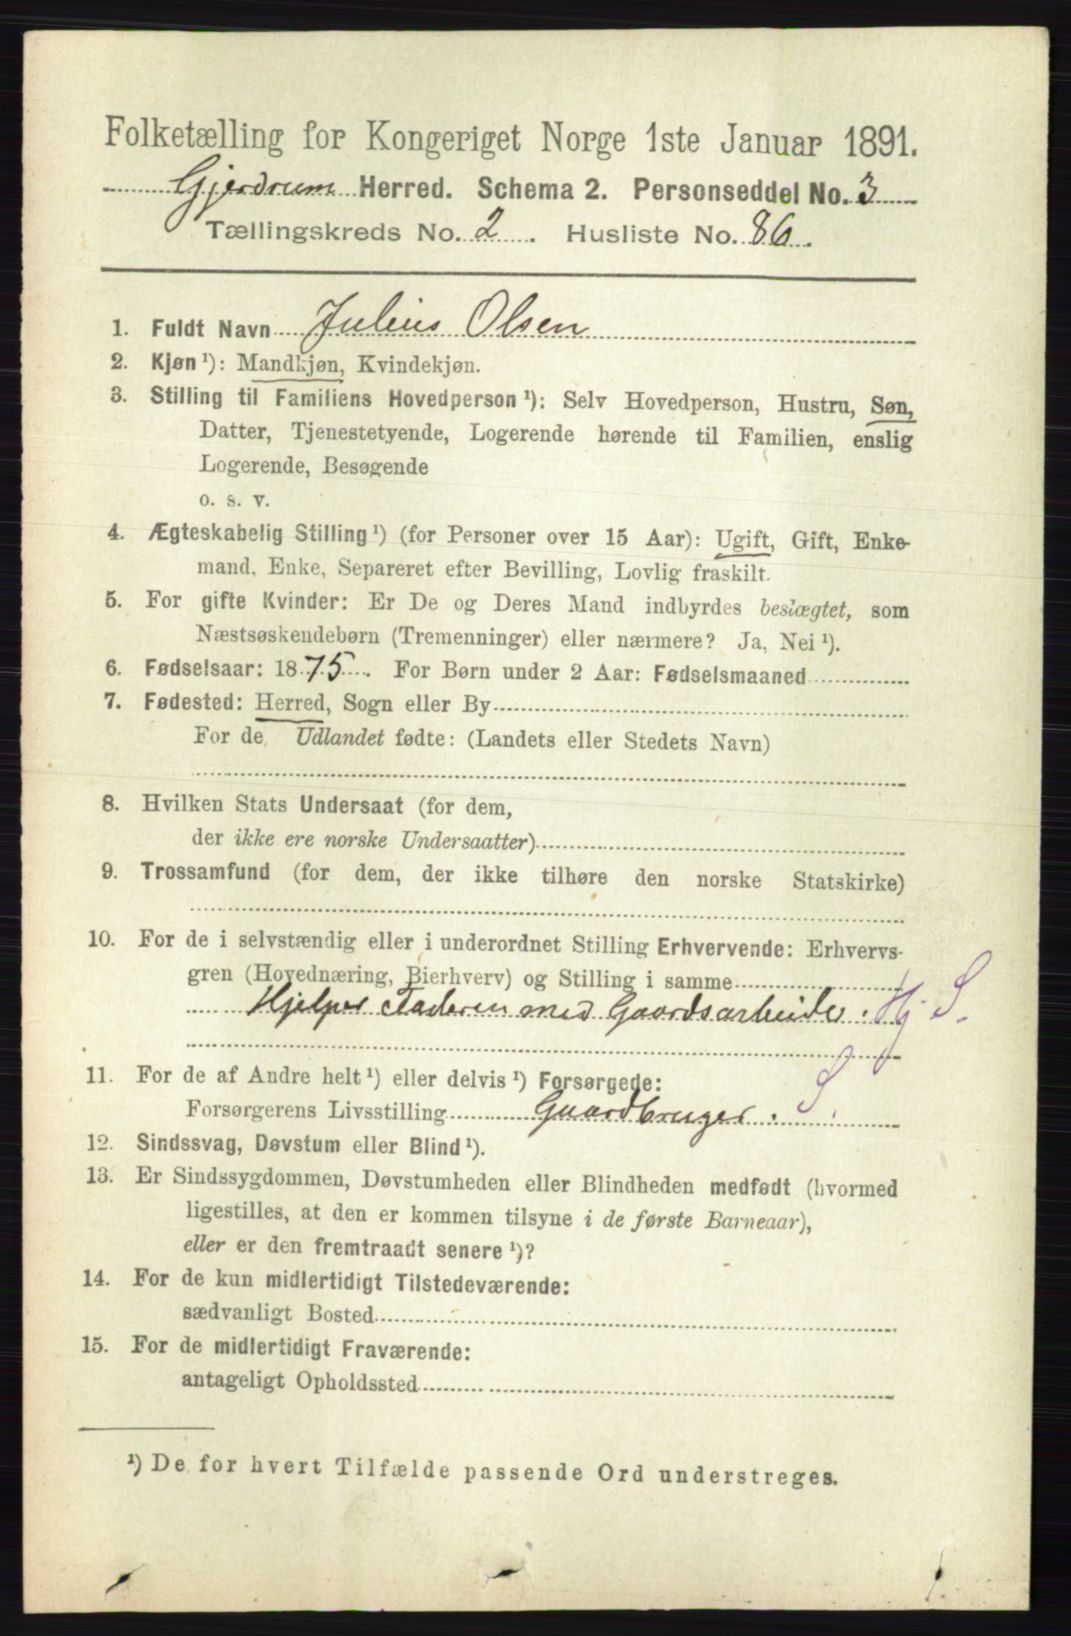 Folketælling for Kongeriget Norge 1ste Januar 1891.
Gjerdrum Herred. Schema 2. Personseddel No. 3
Tællingskreds No. 2. Husliste No. 86.
1. Fuldt Navn Julius Olsen
2. Kjøn ¹): Mandkjøn, Kvindekjøn.
3. Stilling til Familiens Hovedperson ¹): Selv Hovedperson, Hustru, Søn,
Datter, Tjenestetyende, Logerende hørende til Familien, enslig
Logerende, Besøgende
o. s. v.
4. Ægteskabelig Stilling ¹) (for Personer over 15 Aar): Ugift, Gift, Enke-
mand, Enke, Separeret efter Bevilling, Lovlig fraskilt.
5. For gifte Kvinder: Er De og Deres Mand indbyrdes beslægtet, som
Næstsøskendebørn (Tremenninger) eller nærmere? Ja, Nei ¹).
6. Fødselsaar: 1875. For Børn under 2 Aar: Fødselsmaaned
7. Fødested: Herred, Sogn eller By
For de Udlandet fødte: (Landets eller Stedets Navn)
8. Hvilken Stats Undersaat (for dem,
der ikke ere norske Undersaatter)
9. Trossamfund (for dem, der ikke tilhøre den norske Statskirke)
10. For de i selvstændig eller i underordnet Stilling Erhvervende: Erhvervs-
gren (Hovednæring, Bierhverv) og Stilling i samme
Hjelper Faderen med Gaardsarbeide. Hj S.
11. For de af Andre helt ¹) eller delvis ¹) Forsørgede:
Forsørgerens Livsstilling Gaardbruger. S.
12. Sindssvag, Døvstum eller Blind ¹).
13. Er Sindssygdommen, Døvstumheden eller Blindheden medfødt (hvormed
ligestilles, at den er kommen tilsyne i de første Barneaar),
eller er den fremtraadt senere ¹)?
14. For de kun midlertidigt Tilstedeværende:
sædvanligt Bosted
15. For de midlertidigt Fraværende:
antageligt Opholdssted
¹) De for hvert Tilfælde passende Ord understreges.